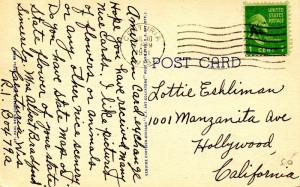 American Card exchange
Hope you have received many
nice cards. I like pictures
of flowers or animals
or any other nice scenery
Do you have State map or
flower of your State.
Sincerely Mrs Albert Bradford
Wis
R.1. Box 79a
UNITED STATES
POSTAGE
1 CENT 1
POST CARD
Lottie Eshliman
1001 Manzanita Ave
Hollywood,
California